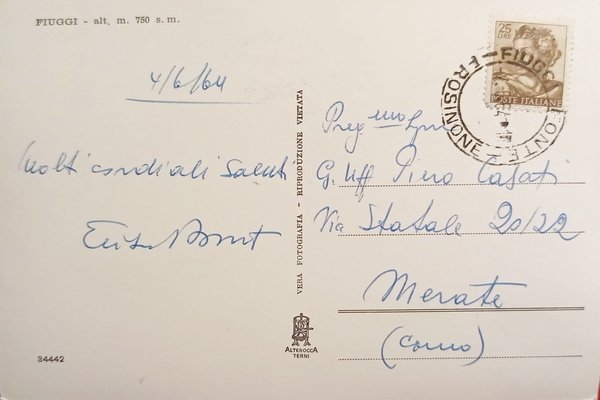 FIUGGI - alt. m. 750 s. m.
4/6/64
Molti cordiali saluti
VERA FOTOGRAFIA - RIPRODUZIONE VIETATA
ALTEROCCA
TERNI
34442
25
LIRE
POSTE ITALIANE
FIUGGI FONTE
FROSINONE
Preg mo
G. Uff Piero Casati
Via Statale 20/22
Merate
(Como)